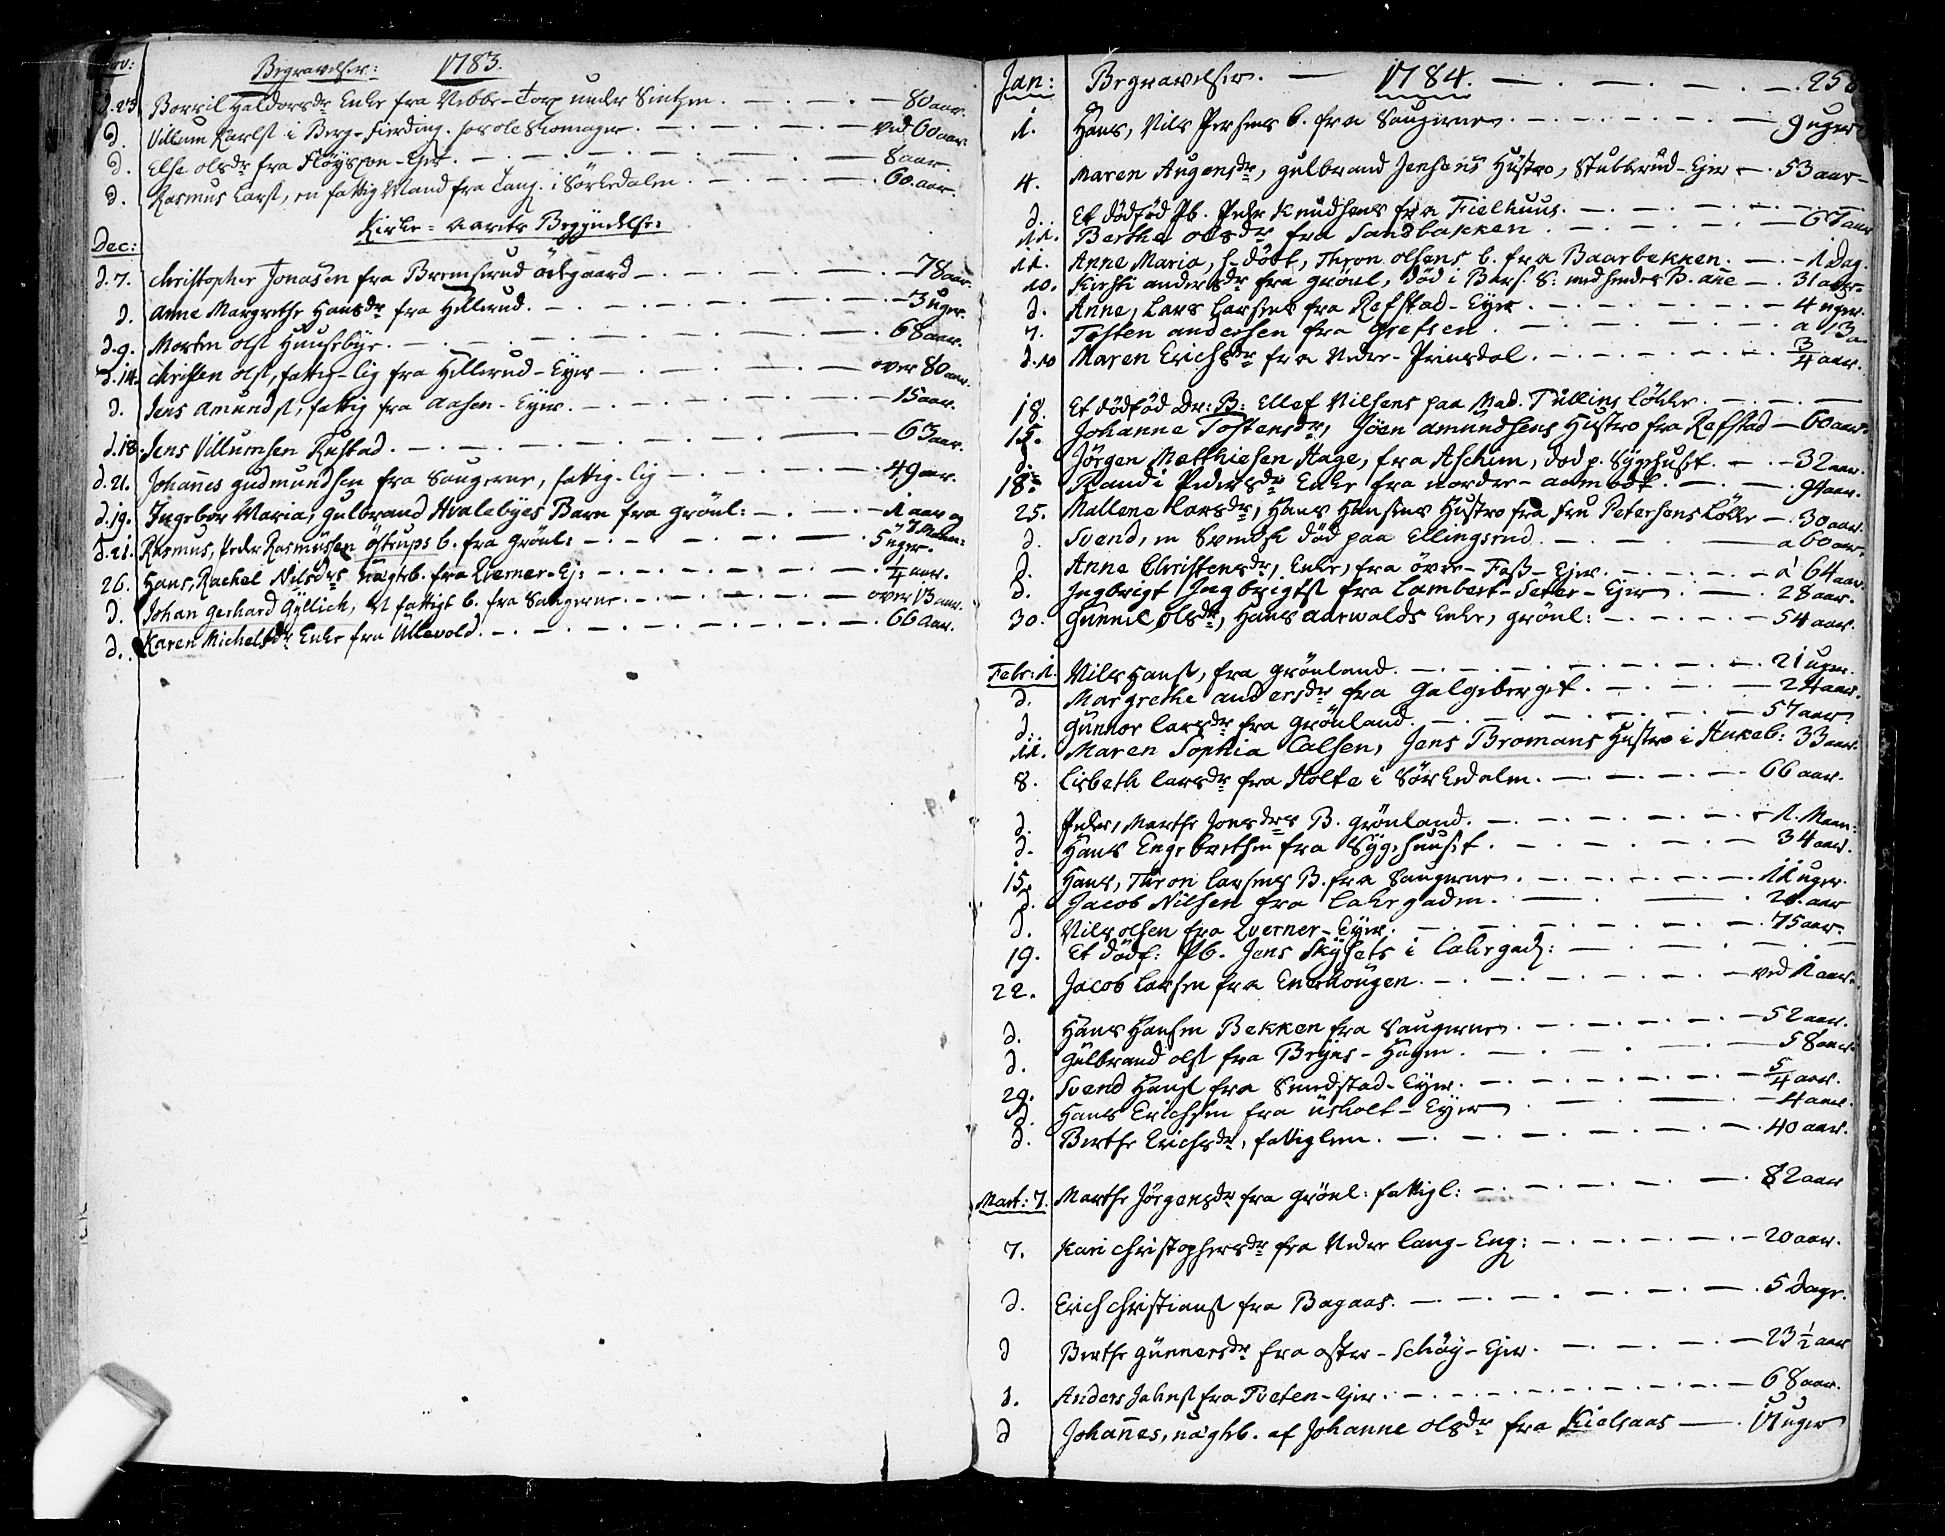 Nov: Begravelser: 1783.
d. 23 Borril Haldorsdr Enke fra Nebbe-Torp under Sinsen. 80 aar.
d. Villum Karlss i Berg-Fierding. hos ole Skomager. ved 60 aar.
d. Else olsdr fra Fløysson-Eier. 8 aar.
d. Rasmus Larss, en fattig Mand fra Tang. i Sørkedalen. 60. aar.
Kirke-aarets Begyndelse:
Dec:
d. 7. christopher Jonasen fra Bremsrud ødegaard 78 aar.
d. Anne Margrethe Hansdr fra Hellerud. 3 uger.
d. 9. Morten olss Huusebye. 68 aar.
d. 14. christen olss, fattig-lig fra Hellerud-Eyer over 80 aar.
d. Jens amundss, fattig fra Aasen-Eyer. 15 aar.
d. 18. Jens Villumsen Rustad. 63 aar.
d. 21. Johannes gudmundsen fra Saugerne, fattig-lig 49 aar.
d. 19. Ingebor Maria, gulbrand Hvalebyes Barn fra Grønl: 1 aar og 7 Maan:
d. 21. Rasmus, Peder Rasmussen østrups b. fra Grønl: 5 uger.
26. Hans, Rachel Nilsdrs uægteb. fra Qverner-Ej: 1/4 aar.
d. Johan gerhard Gyllich, et fattigt b. fra Saugerne. over 13 aar.
d. Karen Michelsdr Enke fra Ullevold. 66 aar.
Jan: Begravelser. 1784. 258
1. Hans, Nils Persens b. fra Saugerne 9 uger
4. Maren Augensdr, gulbrand Jensens Hustro, Stubberud-Ejer 53 aar
d. Et dødfød Pb. Peder Knudsens fra Fielhuus.
11. Berthe olsdr fra Sandbakken 67 aar
11. Anne Maria, h-døbt, Thron olsens b. fra Baarbekken. 1 Dag.
10. Kirsti andersdr fra grønl, død i Bars. S. med hendes B. anne 31 aar
d. Anne, Lars Larsens fra Refstad-Eyer 4 uger.
7. Tosten andersen fra grefsen. a 13 a
d. 10 Maren Erichsdr fra Nedre-Prinsdal. 3/4 aar.
18. Et dødfød Dr: B: Ellef Nilsens paa Mad. Tullins løkke.
15. Johanne Tostensdr, Joen amundsens Hustro fra Refstad 60 aar.
d. Jørgen Matthiesen Aage, fra Aschim, død p. Sygehuset. 32 aar.
18. Randi Pedersdr Enke fra nordre-aamodt. 94 aar.
25. Mallene Larsdr, Hans Hansens Hustro fra Fru Petersens Løkke 30 aar.
d. Svend, en Svensk død paa Ellingsrud. a 60 aar.
d. Anne Christensdr, Enke, fra øvre-Foss-Ejer. a 64 aar.
d. Ingbrigt Ingbrigtss fra Lambert-Seter-Ejer. 28 aar.
30. Gunnil olsdr, Hans aarwolds Enke, grønl: 54 aar.
Febr: 1. Nils Hanss, fra Grønland. 21 uger.
d. Margrethe andersdr fra Galgeberget. 24 aar.
d. Gunnor Larsdr fra Grønland. 57 aar.
11. Maren Sophia Calsen, Jens Bromans Hustro i Ankeb: 33 aar.
8. Lisbeth Larsdr fra Holte i Sørkedalen. 66 aar.
d. Peder, Marthe Jonsdrs B. Grønland. 1. Maan:
d. Hans Engebretsen fra Sygehuuset. 34 aar.
15. Hans, Thron Larsens B. fra Saugerne 11 uger.
d. Jacob Nilsen fra Lakegaden. aar
d. Nils olsen fra Qverner-Eyer. 75 aar.
19. Et dødf: Pb. Jens Skysets i Lakegad:
22. Jacob Larsen fra Enerhougen. ved 1 aar.
d. Hans Hansen Bekken fra Saugerne 52 aar.
d. gulbrand olss fra Bryns-Hagen. 58 aar
29. Svend Hanss fra Smedstad-Eyer. 5/4 aar.
d. Hans Erichsen fra usholt-Eyer 4 aar.
d. Berthe Erichsdr, fattiglem. 40 aar.
Mart: 7. Marthe Jørgensdr fra Grønl: fattigl: 82 aar
7. Kari christophersdr fra Nedre Lang-Eng: 20 aar.
d. Erich christianss fra Bagaas. 5 Dage.
d Berthe gunnersdr fra øster-Schøy-Ejer. 23 1/2 aar
d. Anders Johnss fra Tveten-Ejer. 68 aar.
d Johannes, uægteb. af Johanne olsdr fra Kielsaas uger